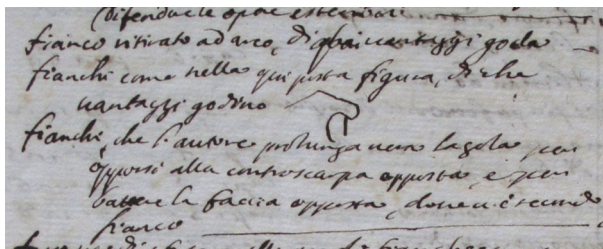 difendere le opere esteriori
fianco ritirato ad arco, di quai vantaggi goda
fianchi come nella qui posta figura, di che
vantaggi godino
fianchi, che l'autore prolunga verso la gola per
opporsi alla controscarpa opposta, e per
battere la faccia opposta, dove v'è secondo
fianco